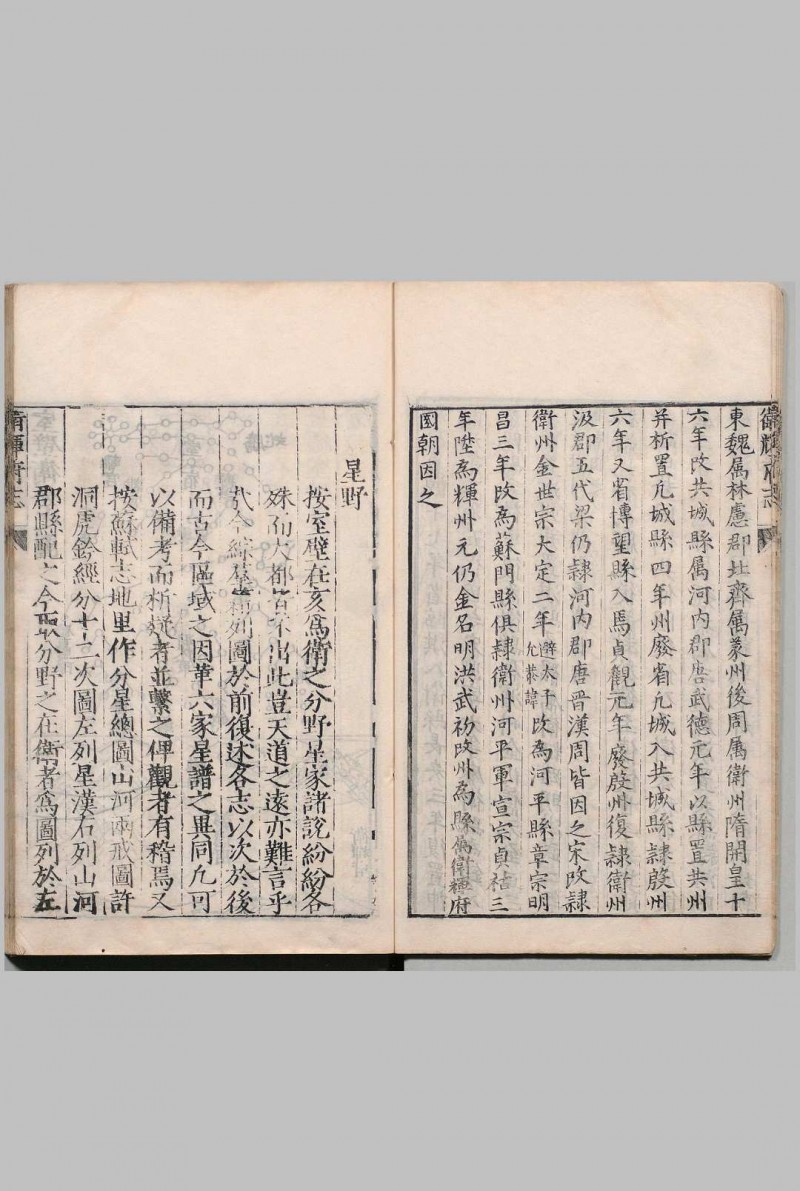 衛輝府志
東魏属林慮郡北齊属義州後周属衛州隋開皇十
六年改共城縣属河内郡唐武德元年以縣置共州
并析置凡城縣四年州廢省凡城入共城縣隸殷州
六年又省博望縣入焉貞觀元年廢殷州復隸衛州
汲郡五代梁仍隸河内郡唐晋漢周皆因之宋改隸
衛州金世宗大定二年避太子允恭諱改為河平縣章宗明
昌三年改為蘇門縣俱隸衛州河平軍宣宗貞祐三
年陞為輝州元仍金名明洪武初改州為縣属衛輝府
國朝因之
星野
按室壁在亥為衛之分野星家諸說紛紛各
殊而大都皆不出此豈天道之遠亦難言乎
哉今綜羣籍列圖於前復述各志以次於後
而古今區域之因革六家星譜之異同凡可
以備考而析疑者並繫之俾觀者有稽焉又
按蘇軾志地里作分星總圖山河兩戒圖許
洞虎鈐經分十二次圖左列星漢右列山河
郡縣配之今取分野之在衛者為圖列於左
衛輝府志